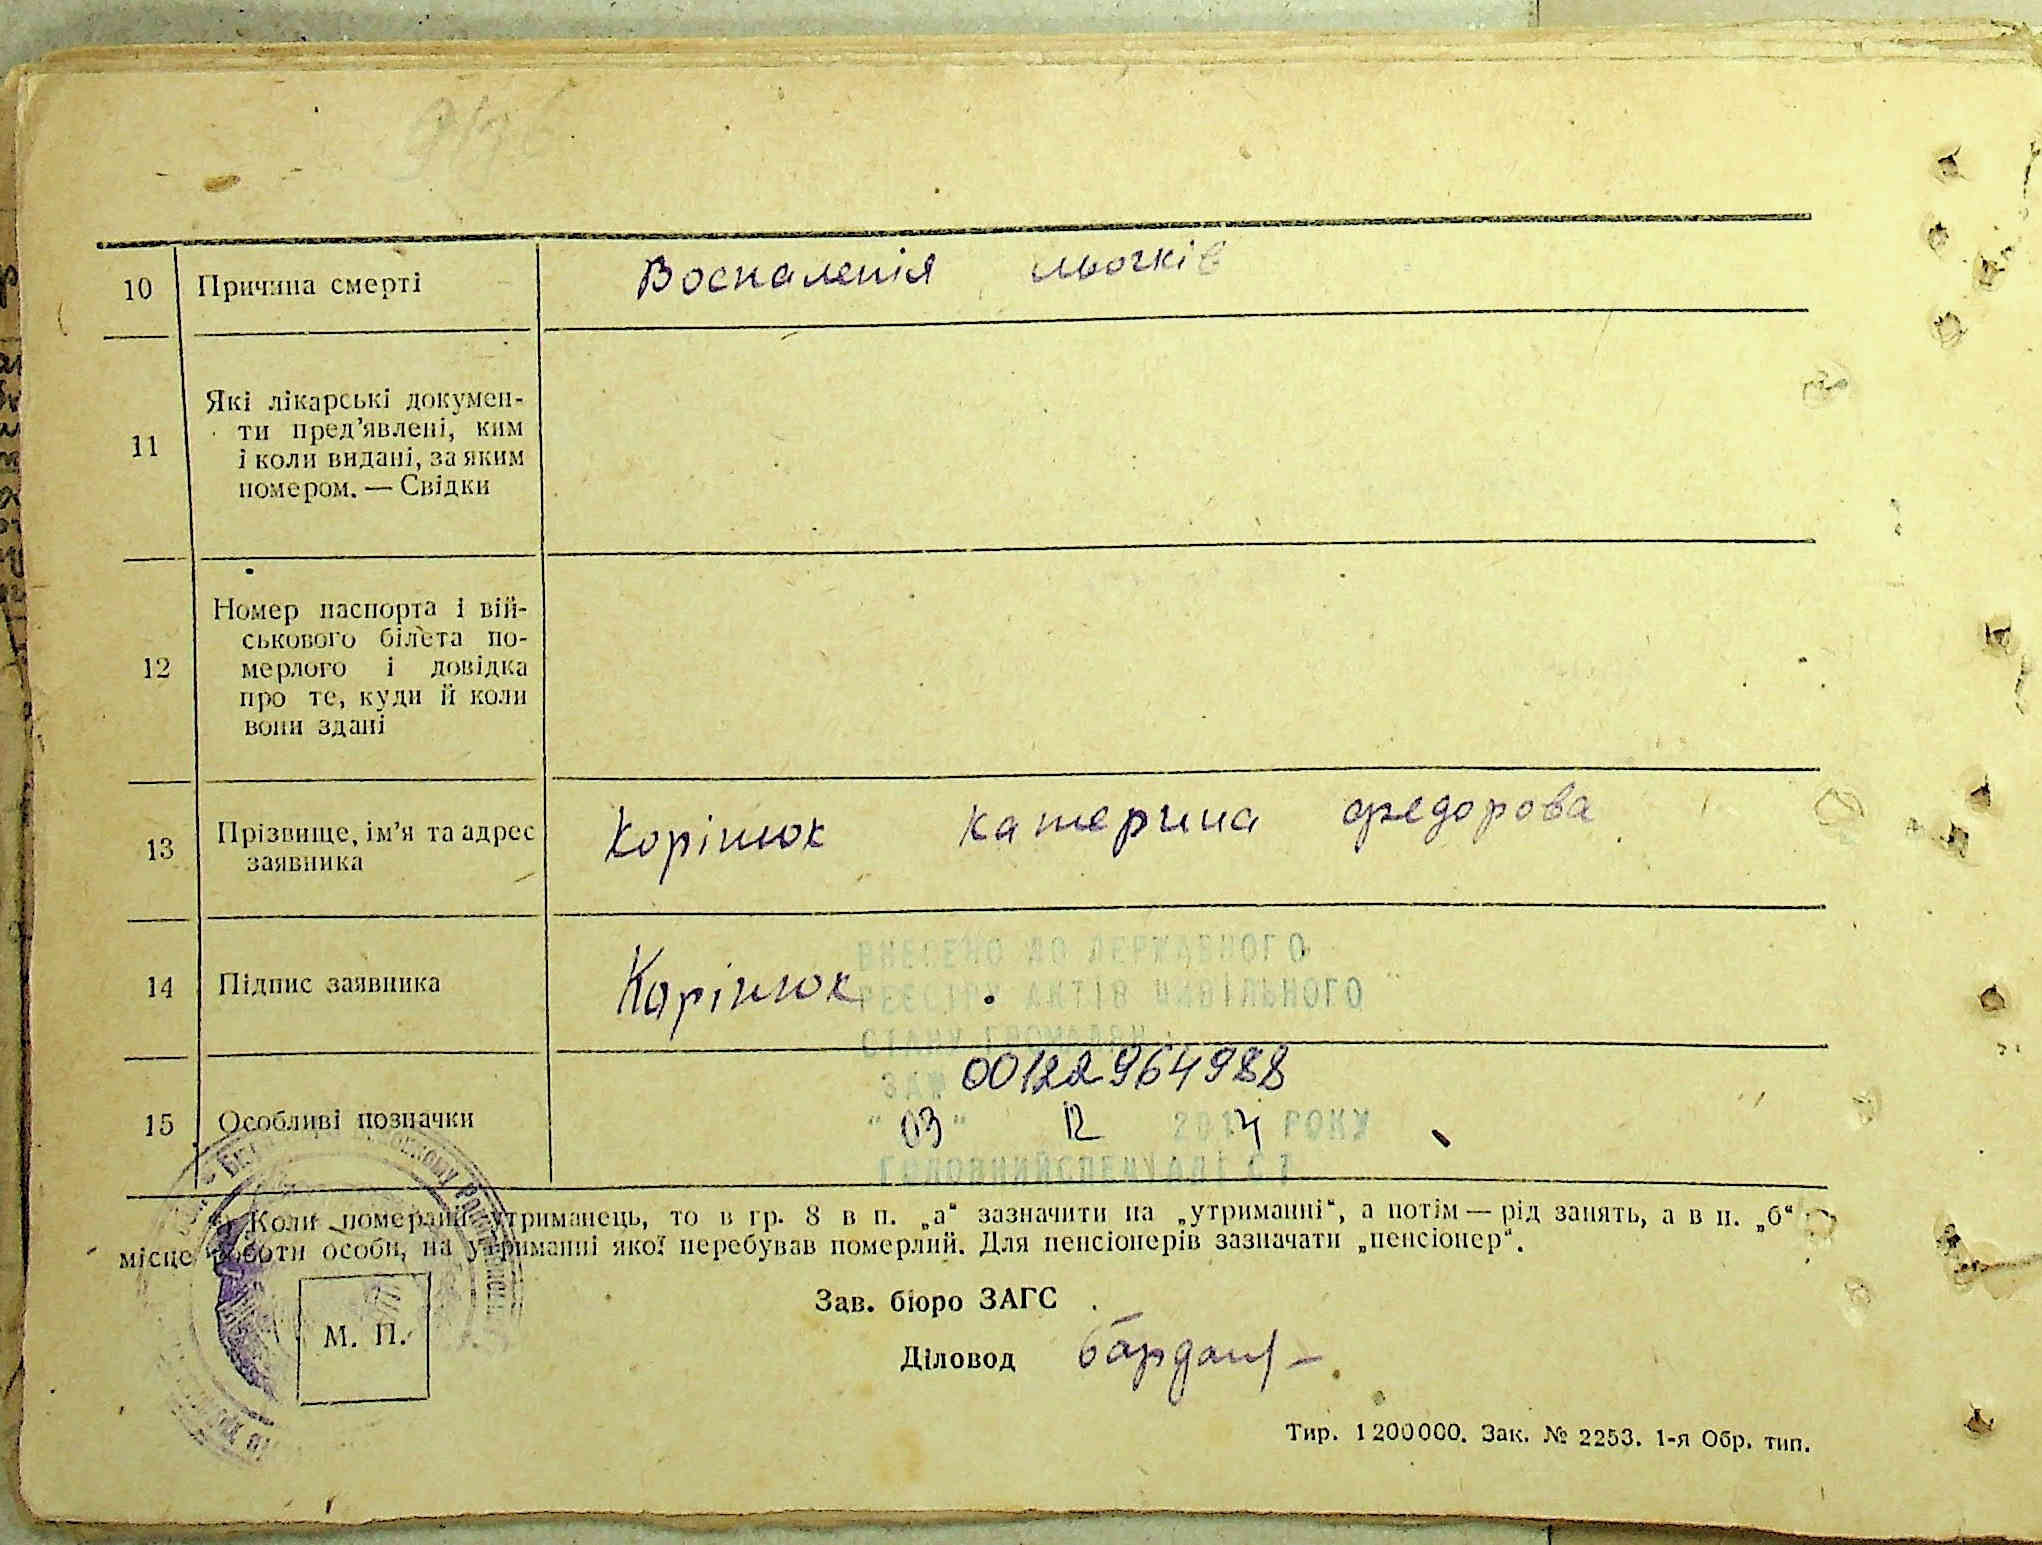 10 Причина смерті Воспаленія льогків
11 Які лікарські докумен-
ти пред’явлені, ким
і коли видані, за яким
номером. — Свідки
12 Номер паспорта і вій-
ськового білета по-
мерлого і довідка
про те, куди й коли
вони здані
13 Прізвище, ім’я та адрес
заявника
Корінюк Катерина федорова
14 Підпис заявника Корінюк
ВНЕСЕНО ДО ДЕРЖАВНОГО
РЕЄСТРУ АКТІВ ЦИВІЛЬНОГО
СТАНУ ГРОМАДЯН
ЗА № 00122964988
15 Особливі позначки
"03" 12 РОКУ
ГОЛОВНИЙ СПЕЦІАЛІСТ
Коли померлий утриманець, то в гр. 8 в п. „а“ зазначити на „утриманні“, а потім — рід занять, а в п. „б“
місце роботи особи, на утриманні якої перебував померлий. Для пенсіонерів зазначати „пенсіонер“.
Зав. бюро ЗАГС
Діловод
М. П.
Тир. 1200000. Зак. № 2253. 1-я Обр. тип.